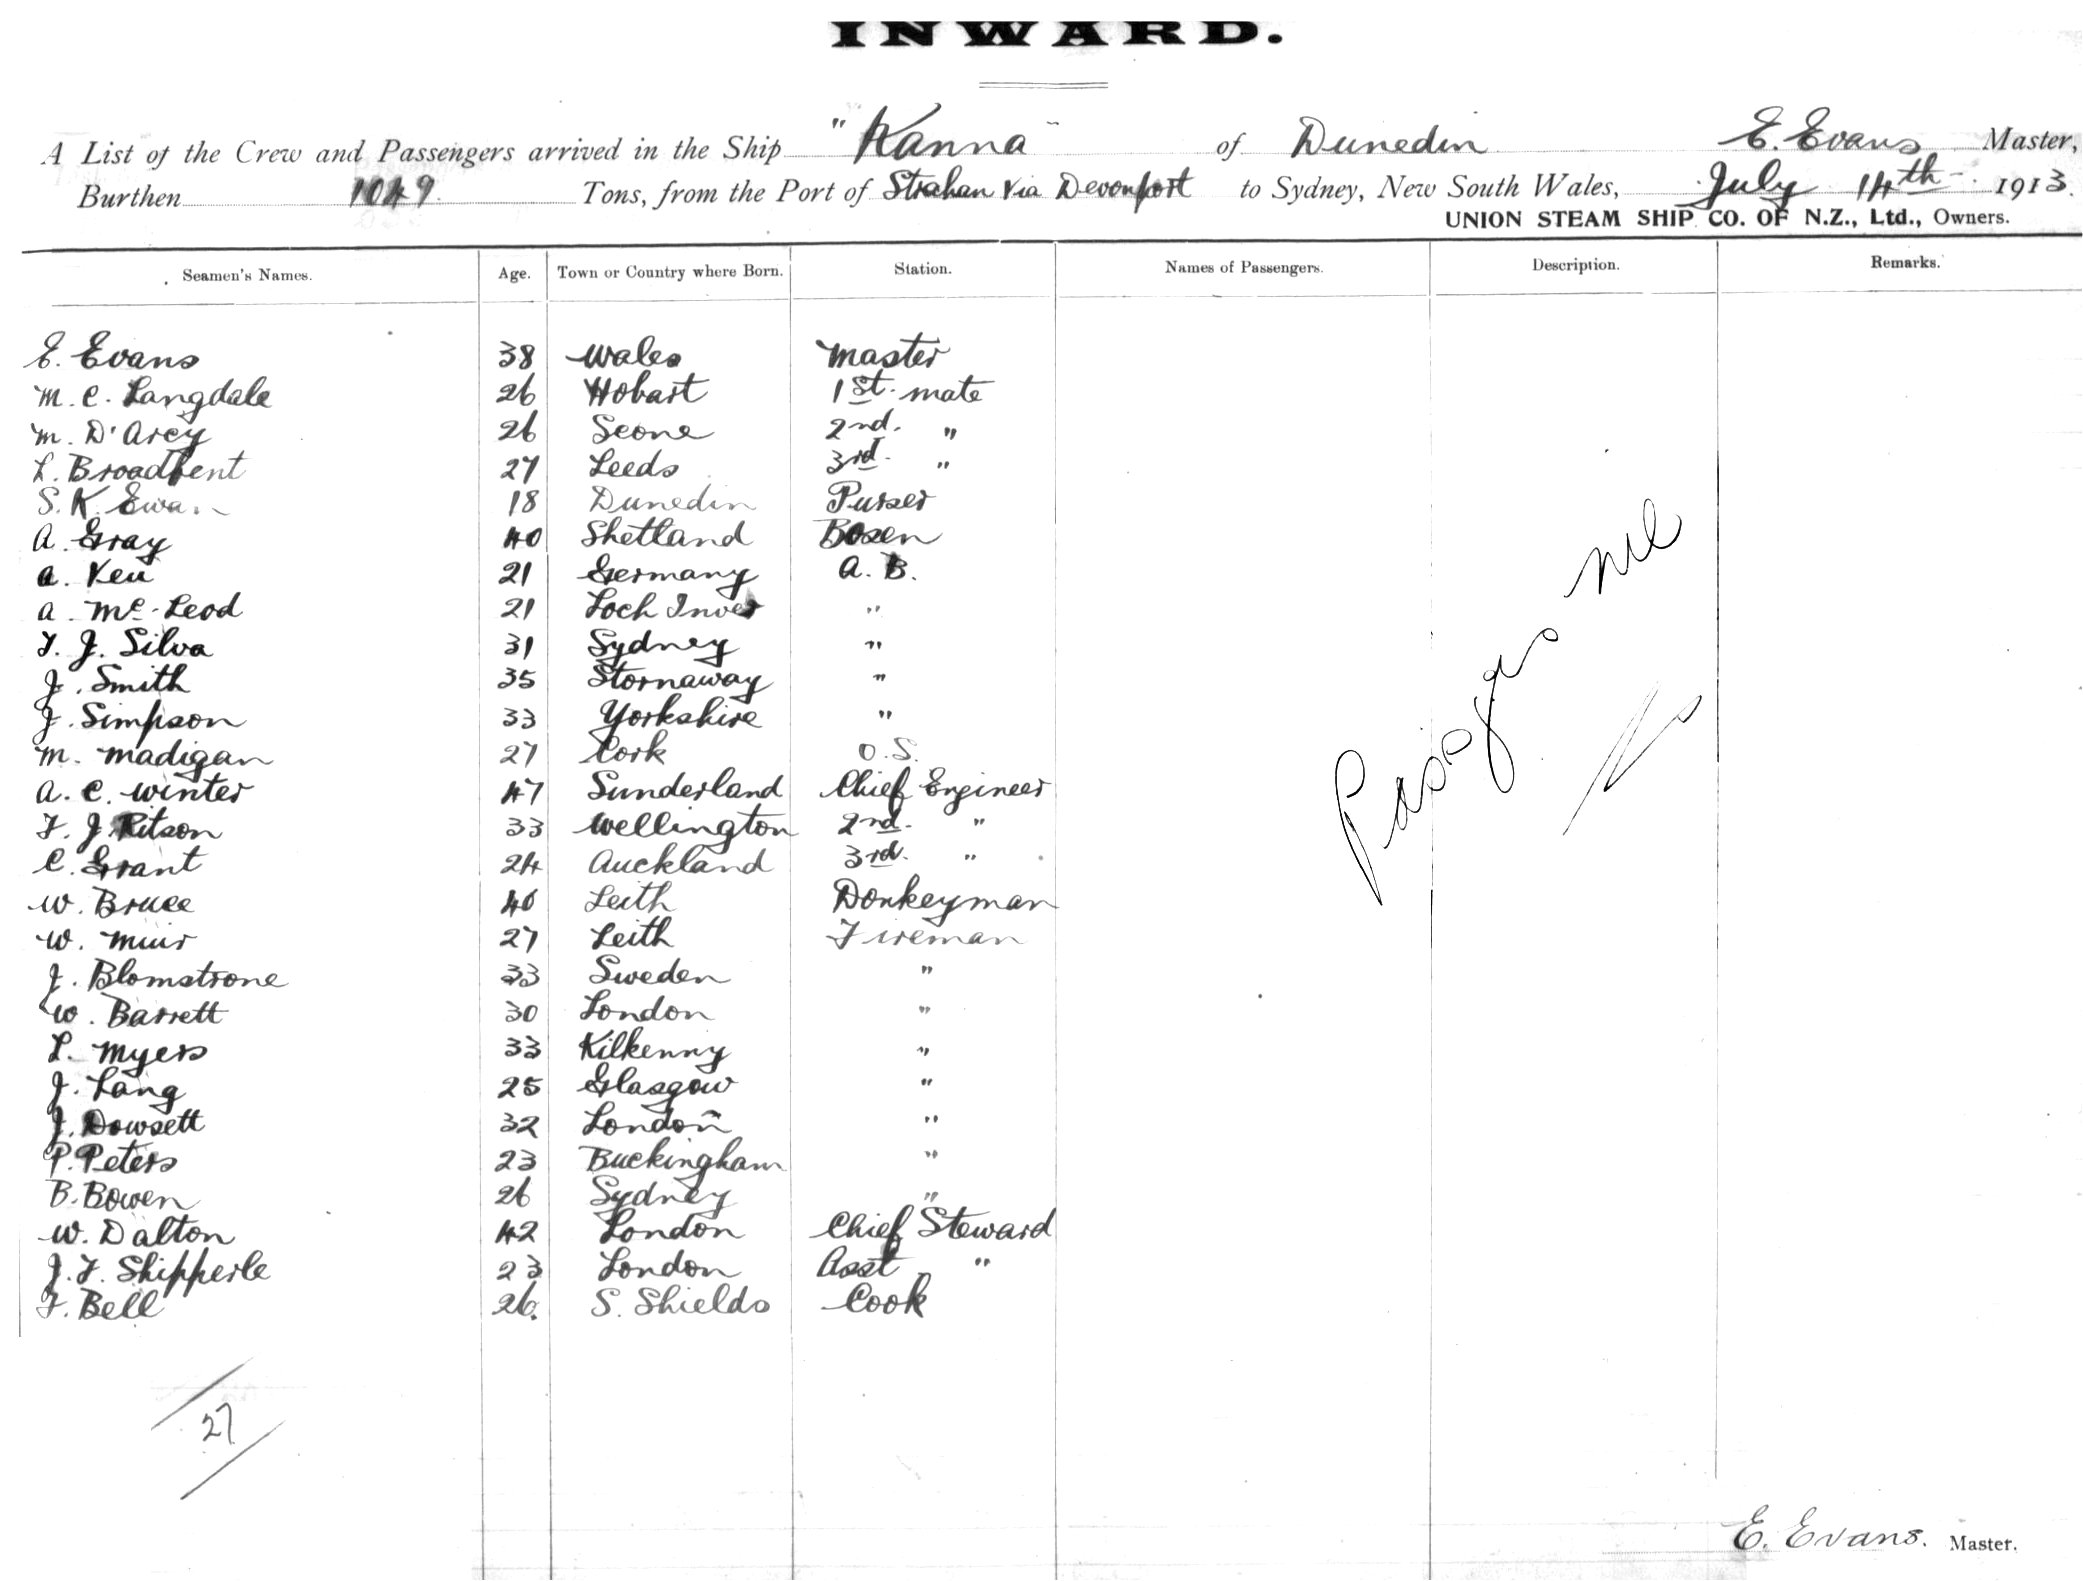 INWARD.
A List of the Crew and Passengers arrived in the Ship "Kanna" of Dunedin E. Evans Master,
Burthen 1049 Tons, from the Port of Strahan via Devonport to Sydney, New South Wales, July 14th 1913.
UNION STEAM SHIP CO. OF N.Z., Ltd., Owners.
Seamen's Names. Age. Town or Country where Born. Station. Names of Passengers. Description. Remarks.
E. Evans 38 Wales Master
M. C. Langdale 26 Hobart 1st. mate
M. D'Arcy 26 Scone 2nd. "
L. Broadbent 27 Leeds 3rd. "
S. K. Ewan 18 Dunedin Purser
A. Gray 40 Shetland Bosen
A. 21 Germany A. B.
A. McLeod 21 Loch Inver "
F. J. Silva 31 Sydney "
J. Smith 35 Stornaway "
J. Simpson 33 Yorkshire "
M. Madigan 27 Cork O.S.
A. C. Winter 47 Sunderland Chief Engineer
F. J. Ritson 33 Wellington 2nd. "
C. Grant 24 Auckland 3rd. "
W. Bruce 40 Leith Donkeyman
W. Muir 27 Leith Fireman
J. Blomstrone 33 Sweden "
W. Barrett 30 London "
L. Myers 33 Kilkenny "
J. Lang 25 Glasgow "
J. Dowsett 32 London "
P. Peters 23 Buckingham "
B. Bowen 26 Sydney "
W. Dalton 42 London Chief Steward
J. F. Shipperle 23 London Asst "
F. Bell 26. S. Shields Cook
Passengers nil
27
E. Evans. Master.